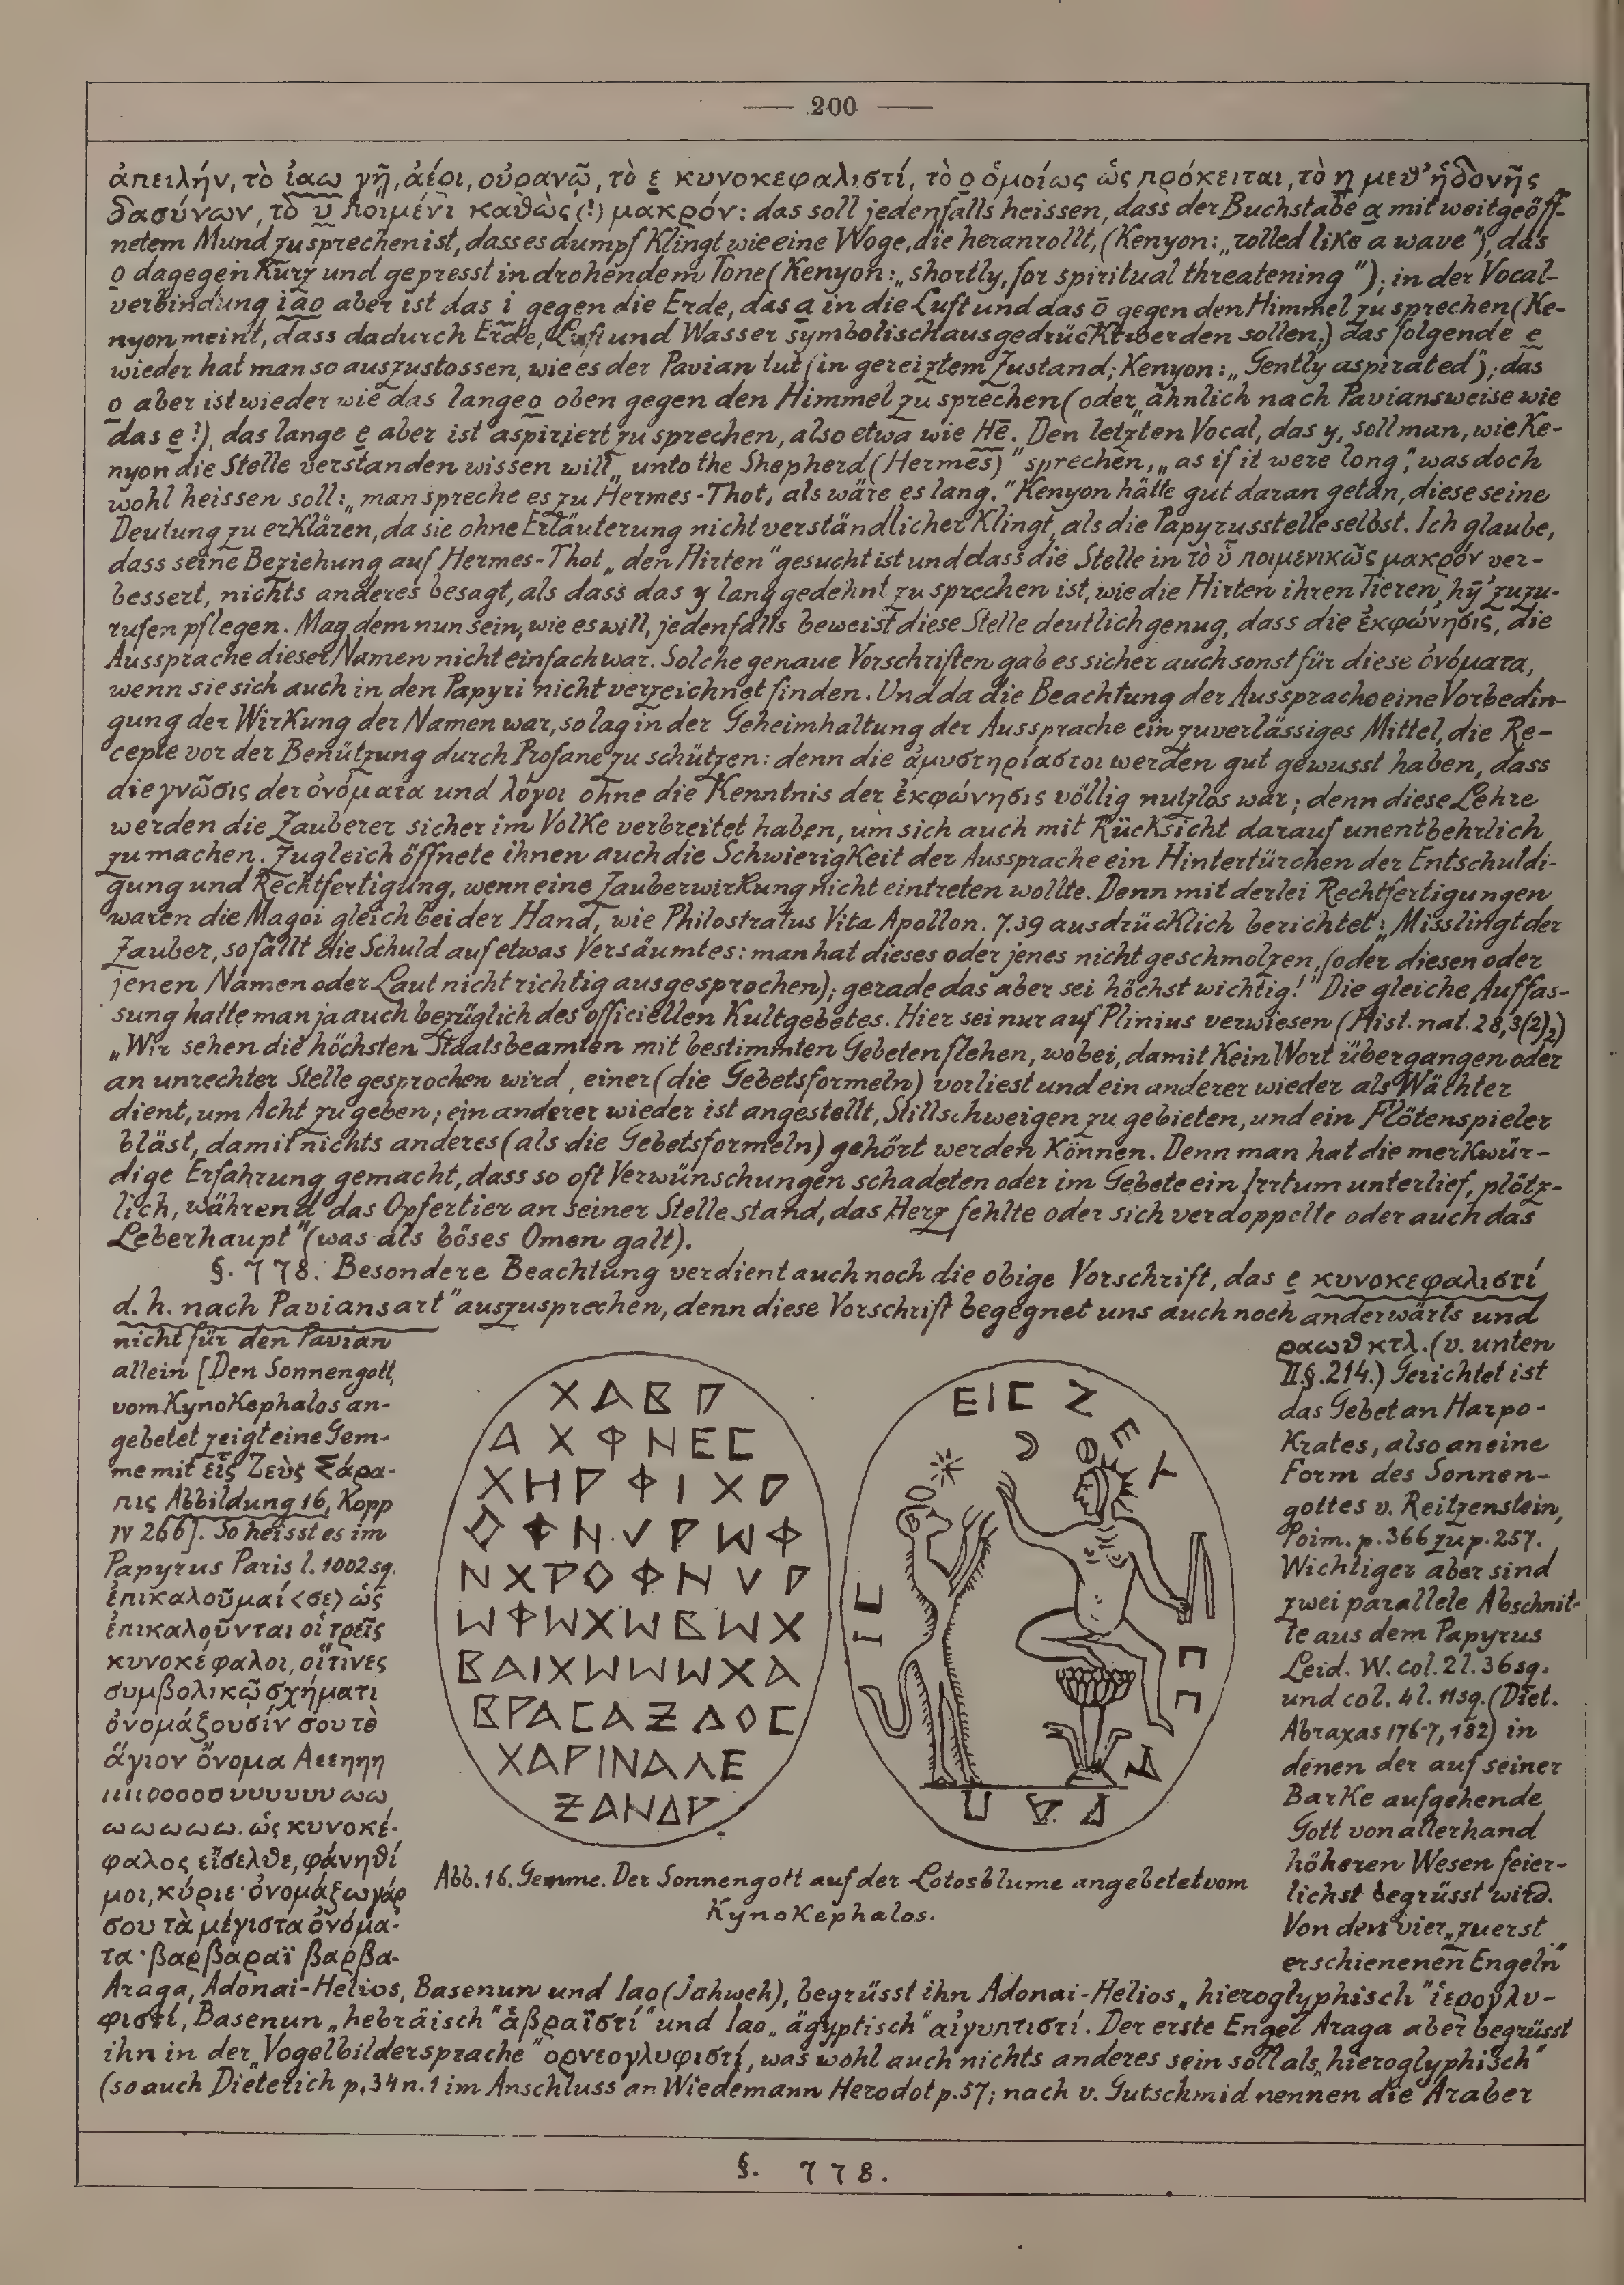 — 200 —
ἀπειλήν, τὸ ἰαω γῇ, ἀέρι, οὐρανῷ, τὸ ε κυνοκεφαλιστί, τὸ ο ὁμοίως ὡς πρόκειται, τὸ η μεθ' ἡδονῆς
δασύνων, τὸ υ ποιμένι καθὼς (!) μακρόν: das soll jedenfalls heissen, dass der Buchstabe a mit weitgeöff-
netem Mund zu sprechen ist, dass es dumpf klingt wie eine Woge, die heranrollt, (Kenyon: „rolled like a wave"), das
o dagegen kurz und gepresst in drohendem Tone (Kenyon: „shortly, for spiritual threatening"); in der Vocal-
verbindung iao aber ist das i gegen die Erde, das a in die Luft und das ō gegen den Himmel zu sprechen (Ke-
nyon meint, dass dadurch Erde, Luft und Wasser symbolisch ausgedrückt werden sollen,) das folgende e
wieder hat man so auszustossen, wie es der Pavian tut (in gereiztem Zustand; Kenyon: „Gently aspirated"); das
o aber ist wieder wie das lange o oben gegen den Himmel zu sprechen (oder „ähnlich nach Paviansweise wie
das e?), das lange e aber ist aspiriert zu sprechen, also etwa wie Hē. Den letzten Vocal, das y, soll man, wie Ke-
nyon die Stelle verstanden wissen will „unto the Shepherd (Hermes)" sprechen, „as if it were long", was doch
wohl heissen soll: „man spreche es zu Hermes-Thot, als wäre es lang." Kenyon hätte gut daran getan, diese seine
Deutung zu erklären, da sie ohne Erläuterung nicht verständlicher klingt, als die Papyrusstelle selbst. Ich glaube,
dass seine Beziehung auf Hermes-Thot „den Hirten" gesucht ist und dass die Stelle in τὸ ῡ ποιμενικῶς μακρόν ver-
bessert, nichts anderes besagt, als dass das y lang gedehnt zu sprechen ist, wie die Hirten ihren Tieren „hȳ" zuzu-
rufen pflegen. Mag dem nun sein, wie es will, jedenfalls beweist diese Stelle deutlich genug, dass die ἐκφώνησις, die
Aussprache dieser Namen nicht einfach war. Solche genaue Vorschriften gab es sicher auch sonst für diese ὀνόματα,
wenn sie sich auch in den Papyri nicht verzeichnet finden. Und da die Beachtung der Aussprache eine Vorbedin-
gung der Wirkung der Namen war, so lag in der Geheimhaltung der Aussprache ein zuverlässiges Mittel, die Re-
cepte vor der Benützung durch Profane zu schützen: denn die ἀμυστηρίαστοι werden gut gewusst haben, dass
die γνῶσις der ὀνόματα und λόγοι ohne die Kenntnis der ἐκφώνησις völlig nutzlos war; denn diese Lehre
werden die Zauberer sicher im Volke verbreitet haben, um sich auch mit Rücksicht darauf unentbehrlich
zu machen. Zugleich öffnete ihnen auch die Schwierigkeit der Aussprache ein Hintertürchen der Entschuldi-
gung und Rechtfertigung, wenn eine Zauberwirkung nicht eintreten wollte. Denn mit derlei Rechtfertigungen
waren die Magoi gleich bei der Hand, wie Philostratus Vita Apollon. 7.39 ausdrücklich berichtet: „Misslingt der
Zauber, so fällt die Schuld auf etwas Versäumtes: man hat dieses oder jenes nicht geschmolzen, (oder diesen oder
jenen Namen oder Laut nicht richtig ausgesprochen); gerade das aber sei höchst wichtig!" Die gleiche Auffas-
sung hatte man ja auch bezüglich des officiellen Kultgebetes. Hier sei nur auf Plinius verwiesen (Hist. nat. 28,3(2)2)
„Wir sehen die höchsten Staatsbeamten mit bestimmten Gebeten flehen, wobei, damit kein Wort übergangen oder
an unrechter Stelle gesprochen wird, einer (die Gebetsformeln) vorliest und ein anderer wieder als Wächter
dient, um Acht zu geben; ein anderer wieder ist angestellt, Stillschweigen zu gebieten, und ein Flötenspieler
bläst, damit nichts anderes (als die Gebetsformeln) gehört werden können. Denn man hat die merkwür-
dige Erfahrung gemacht, dass so oft Verwünschungen schadeten oder im Gebete ein Irrtum unterlief, plötz-
lich, während das Opfertier an seiner Stelle stand, das Herz fehlte oder sich verdoppelte oder auch das
Leberhaupt" (was als böses Omen galt).
§. 778. Besondere Beachtung verdient auch noch die obige Vorschrift, das e κυνοκεφαλιστί
d. h. nach Paviansart" auszusprechen, denn diese Vorschrift begegnet uns auch noch anderwärts und
nicht für den Pavian
allein [Den Sonnengott,
vom Kynokephalos an-
gebetet zeigt eine Gem-
me mit εἷς Ζεὺς Σάρα-
πις Abbildung 16, Kopp
IV 266]. So heisst es im
Papyrus Paris l. 1002 sq.
ἐπικαλοῦμαί <σε> ὡς
ἐπικαλοῦνται οἱ τρεῖς
κυνοκέφαλοι, οἵτινες
συμβολικῷ σχήματι
ὀνομάζουσίν σου τὸ
ἅγιον ὄνομα Αεεηηη
ιιιιοοοοουυυυυυωω
ωωωωω. ὡς κυνοκέ-
φαλος εἴσελθε, φάνηθί
μοι, κύριε· ὀνομάζω γάρ
σου τὰ μέγιστα ὀνόμα-
τα· βαρβαραϊ βαρβα-
ΧΑΒΡ
ΑΧΦΝΕϹ
ΧΗΡΦΙΧΡ
ΟΦΝΥΡωΦ
ΝΧΡΟΦΝΥΡ
ωΦωΧωΒωΧ
ΒΑΙΧωωωΧΑ
ΒΡΑϹΑΖΑΟϹ
ΧΑΡΙΝΑΛΕ
ΖΑΝΔΡ
ΕΙϹ Ζ
Ε
Υ
Ϲ
Ϲ
Α
Ρ
Α
Π
ΙϹ
Abb. 16. Gemme. Der Sonnengott auf der Lotosblume angebetet vom
Kynokephalos.
ραωθ κτλ. (v. unten
II. §. 214.) Gerichtet ist
das Gebet an Harpo-
krates, also an eine
Form des Sonnen-
gottes v. Reitzenstein,
Poim. p. 366 zu p. 257.
Wichtiger aber sind
zwei parallele Abschnit-
te aus dem Papyrus
Leid. W. col. 2 l. 36 sg.
und col. 4 l. 11 sg. (Diet.
Abraxas 176-7, 182) in
denen der auf seiner
Barke aufgehende
Gott von allerhand
höheren Wesen feier-
lichst begrüsst wird.
Von den vier „zuerst
erschienenen Engeln"
Araga, Adonai-Helios, Basenun und Iao (Jahweh), begrüsst ihn Adonai-Helios „hieroglyphisch" ἱερογλυ-
φιστί, Basenun „hebräisch" ἁβραϊστί" und Iao „ägyptisch" αἰγυπτιστί. Der erste Engel Araga aber begrüsst
ihn in der „Vogelbildersprache" ορνεογλυφιστί, was wohl auch nichts anderes sein soll als „hieroglyphisch"
(so auch Dieterich p. 34 n. 1 im Anschluss an Wiedemann Herodot p. 57; nach v. Gutschmid nennen die Araber
§. 778.